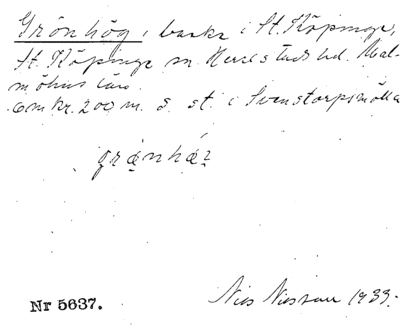 Grönhög, backe i St. Köpinge,
St. Köpinge sn. Herrestads hd. Mal-
möhus län.
Omkr. 200 m. s. st. i Svenstorpsmölla
Nr 5637.
Nils Nilsson 1933.